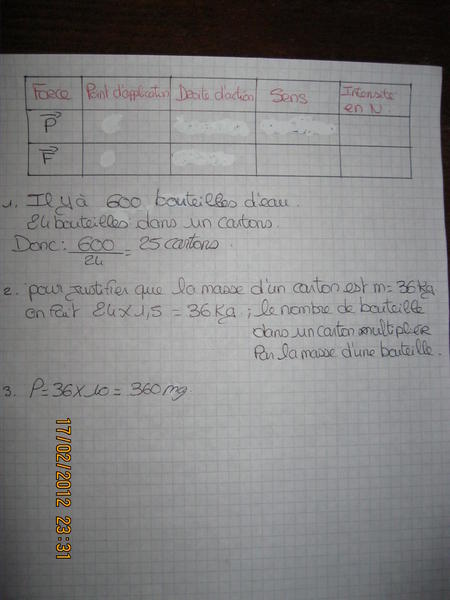 Force Point d'application Droite d'action Sens Intensité en N
P
F
1. Il y à 600 bouteilles d'eau.
24 bouteilles dans un cartons.
Donc: 600/24 = 25 cartons.
2. pour justifier que la masse d'un carton est m= 36Kg
on fait 24 x 1,5 = 36Kg ; le nombre de bouteille
dans un carton multiplier
Par la masse d'une bouteille.
3. P= 36 x 10 = 360 mg.
17/02/2012 23:31